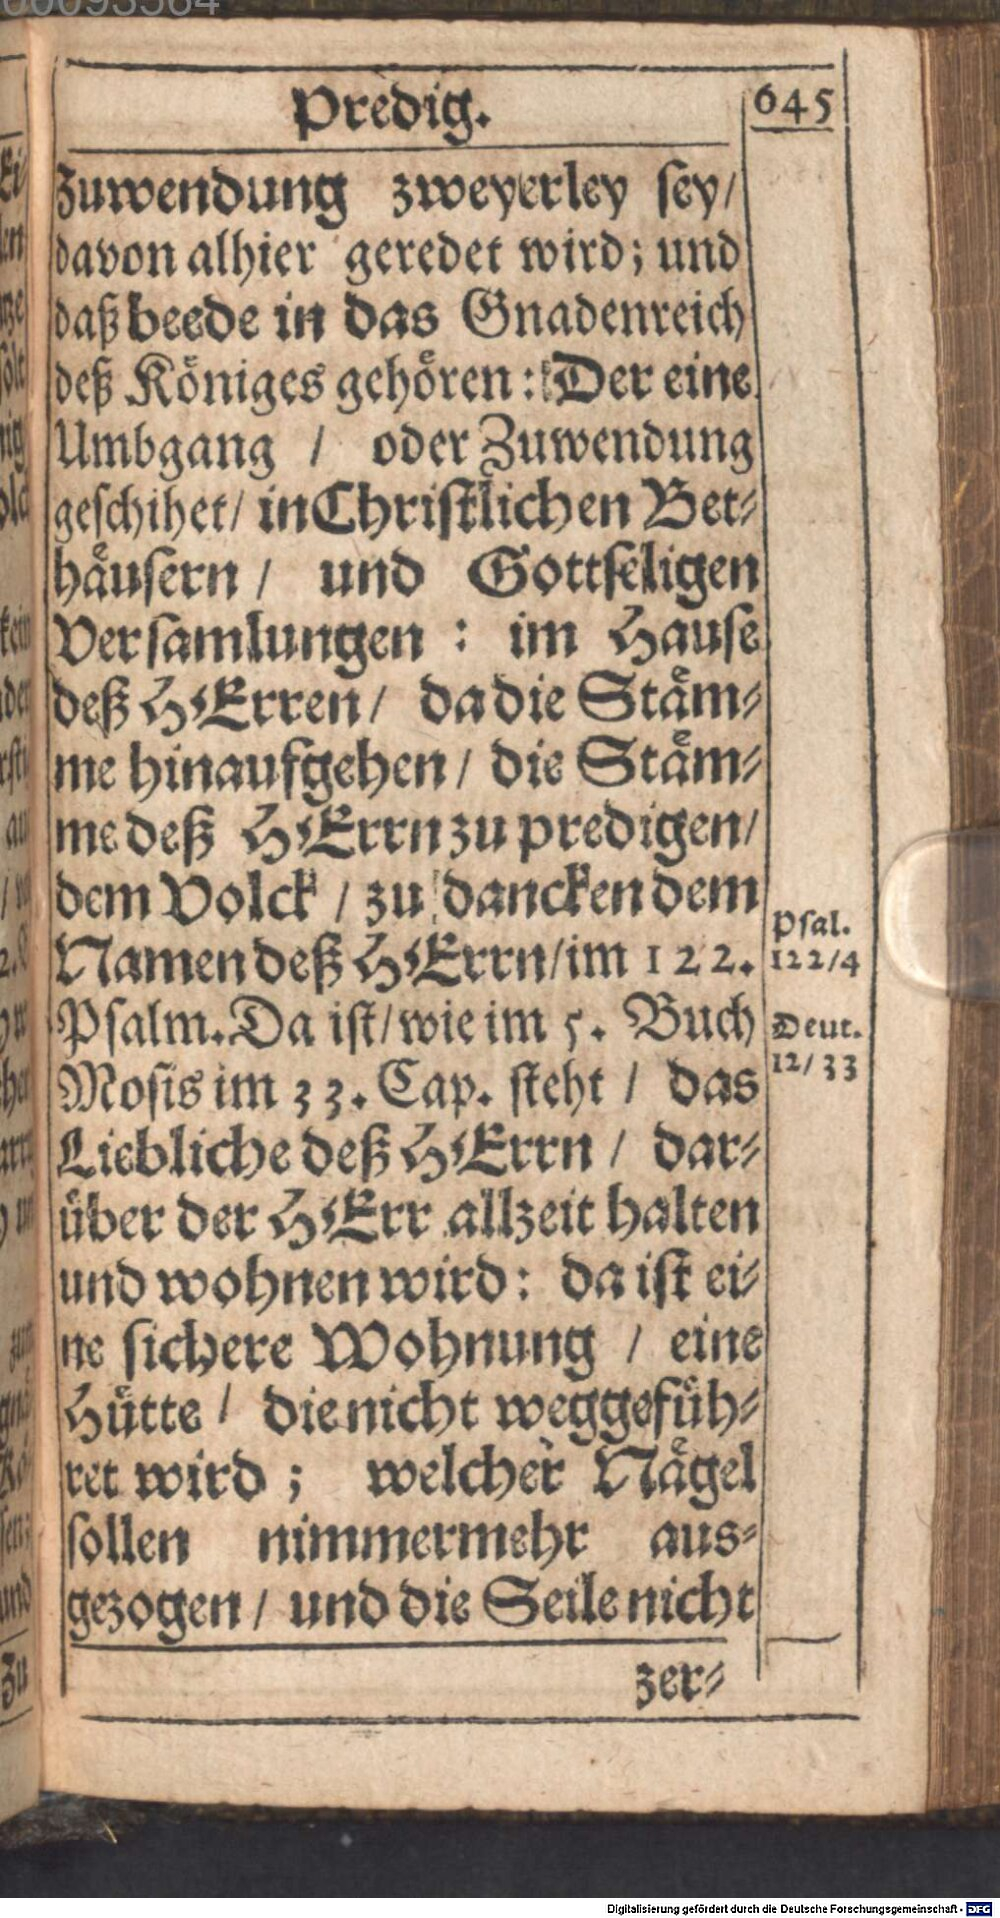 Predig.
645
Zuwendung zweyerley sey/
davon alhier geredet wird; und
daß beede in das Gnadenreich
deß Königes gehören: Der eine
Umbgang / oder Zuwendung
geschihet/ in Christlichen Bet-
häusern / und Gottseligen
Versamlungen : im Hause
deß HErren / da die Stäm-
me hinaufgehen / die Stäm-
me deß HErrn zu predigen/
dem Volck / zu dancken dem
Namen deß HErrn/im 122.
Psalm. Da ist/wie im 5. Buch
Mosis im 33. Cap. steht / das
Liebliche deß HErrn / dar-
über der HErr allzeit halten
und wohnen wird: da ist ei-
ne sichere Wohnung / eine
Hütte / die nicht weggefüh-
ret wird ; welcher Nägel
sollen nimmermehr aus-
gezogen / und die Seile nicht
zer-
Psal.
122/4
Deut.
12/33
Digitalisierung gefördert durch die Deutsche Forschungsgemeinschaft - DFG